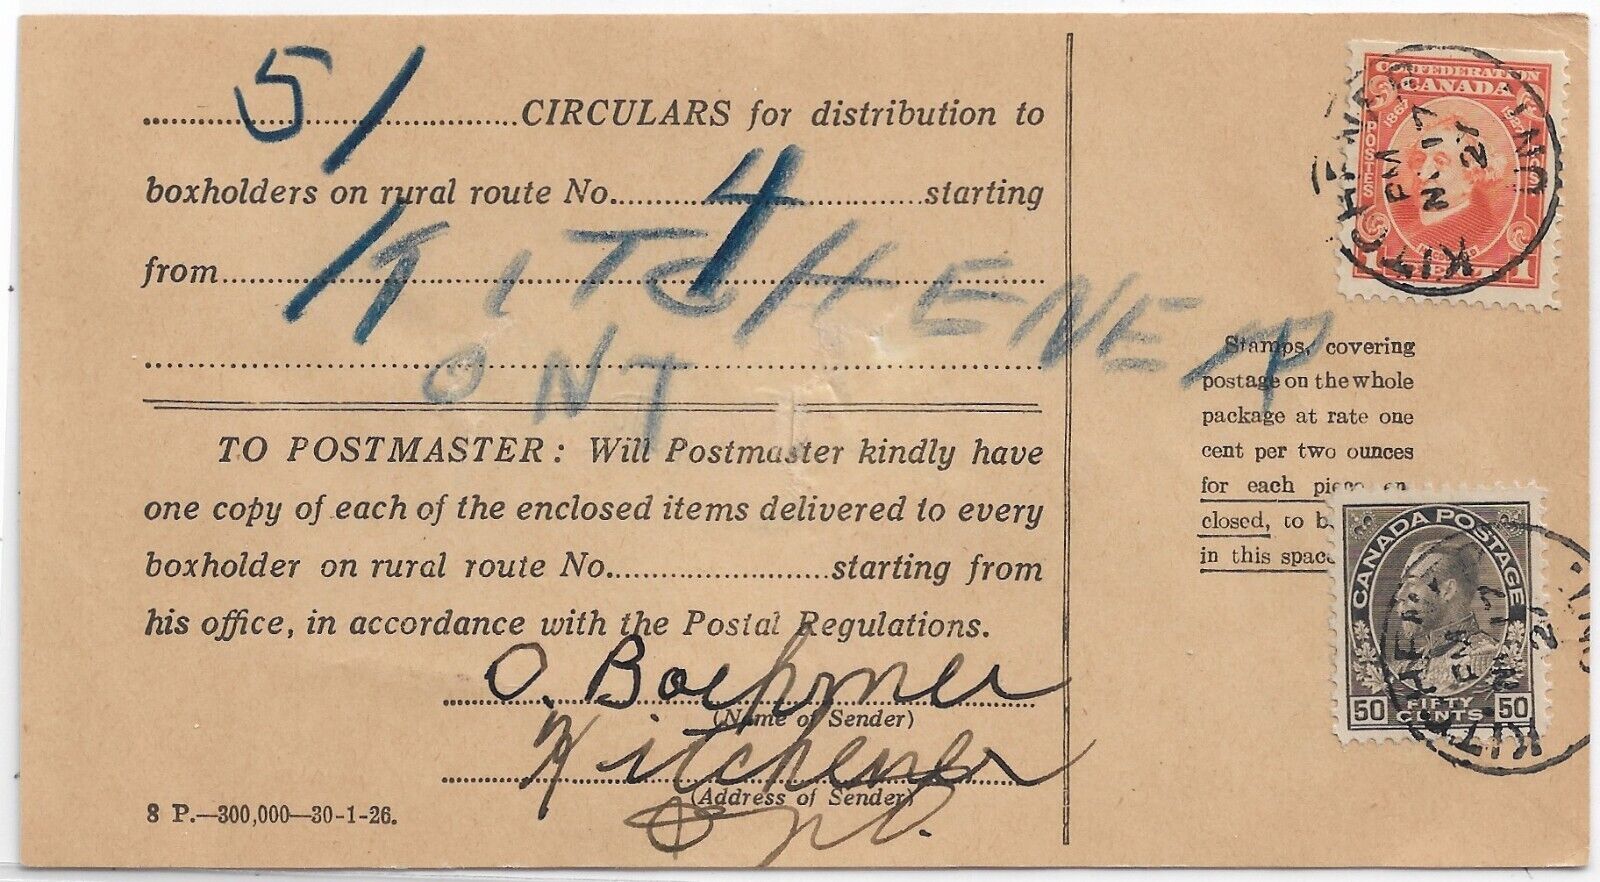 51 CIRCULARS for distribution to
boxholders on rural route No. 4 starting
from KITCHENER
ONT
TO POSTMASTER: Will Postmaster kindly have
one copy of each of the enclosed items delivered to every
boxholder on rural route No. starting from
his office, in accordance with the Postal Regulations.
O. Boehmer
(Name of Sender)
Kitchener
(Address of Sender)
Ont.
8 P.—300,000—30-1-26.
CONFEDERATION
CANADA
1867 1927
POSTES POSTAGE
1 CENT 1
KITCHENER ONT.
PM
NO 17
27
Stamps, covering
postage on the whole
package at rate one
cent per two ounces
for each piece en
closed, to b
in this space
CANADA POSTAGE
50 FIFTY CENTS 50
KITCHENER ONT
PM
NO 17
27